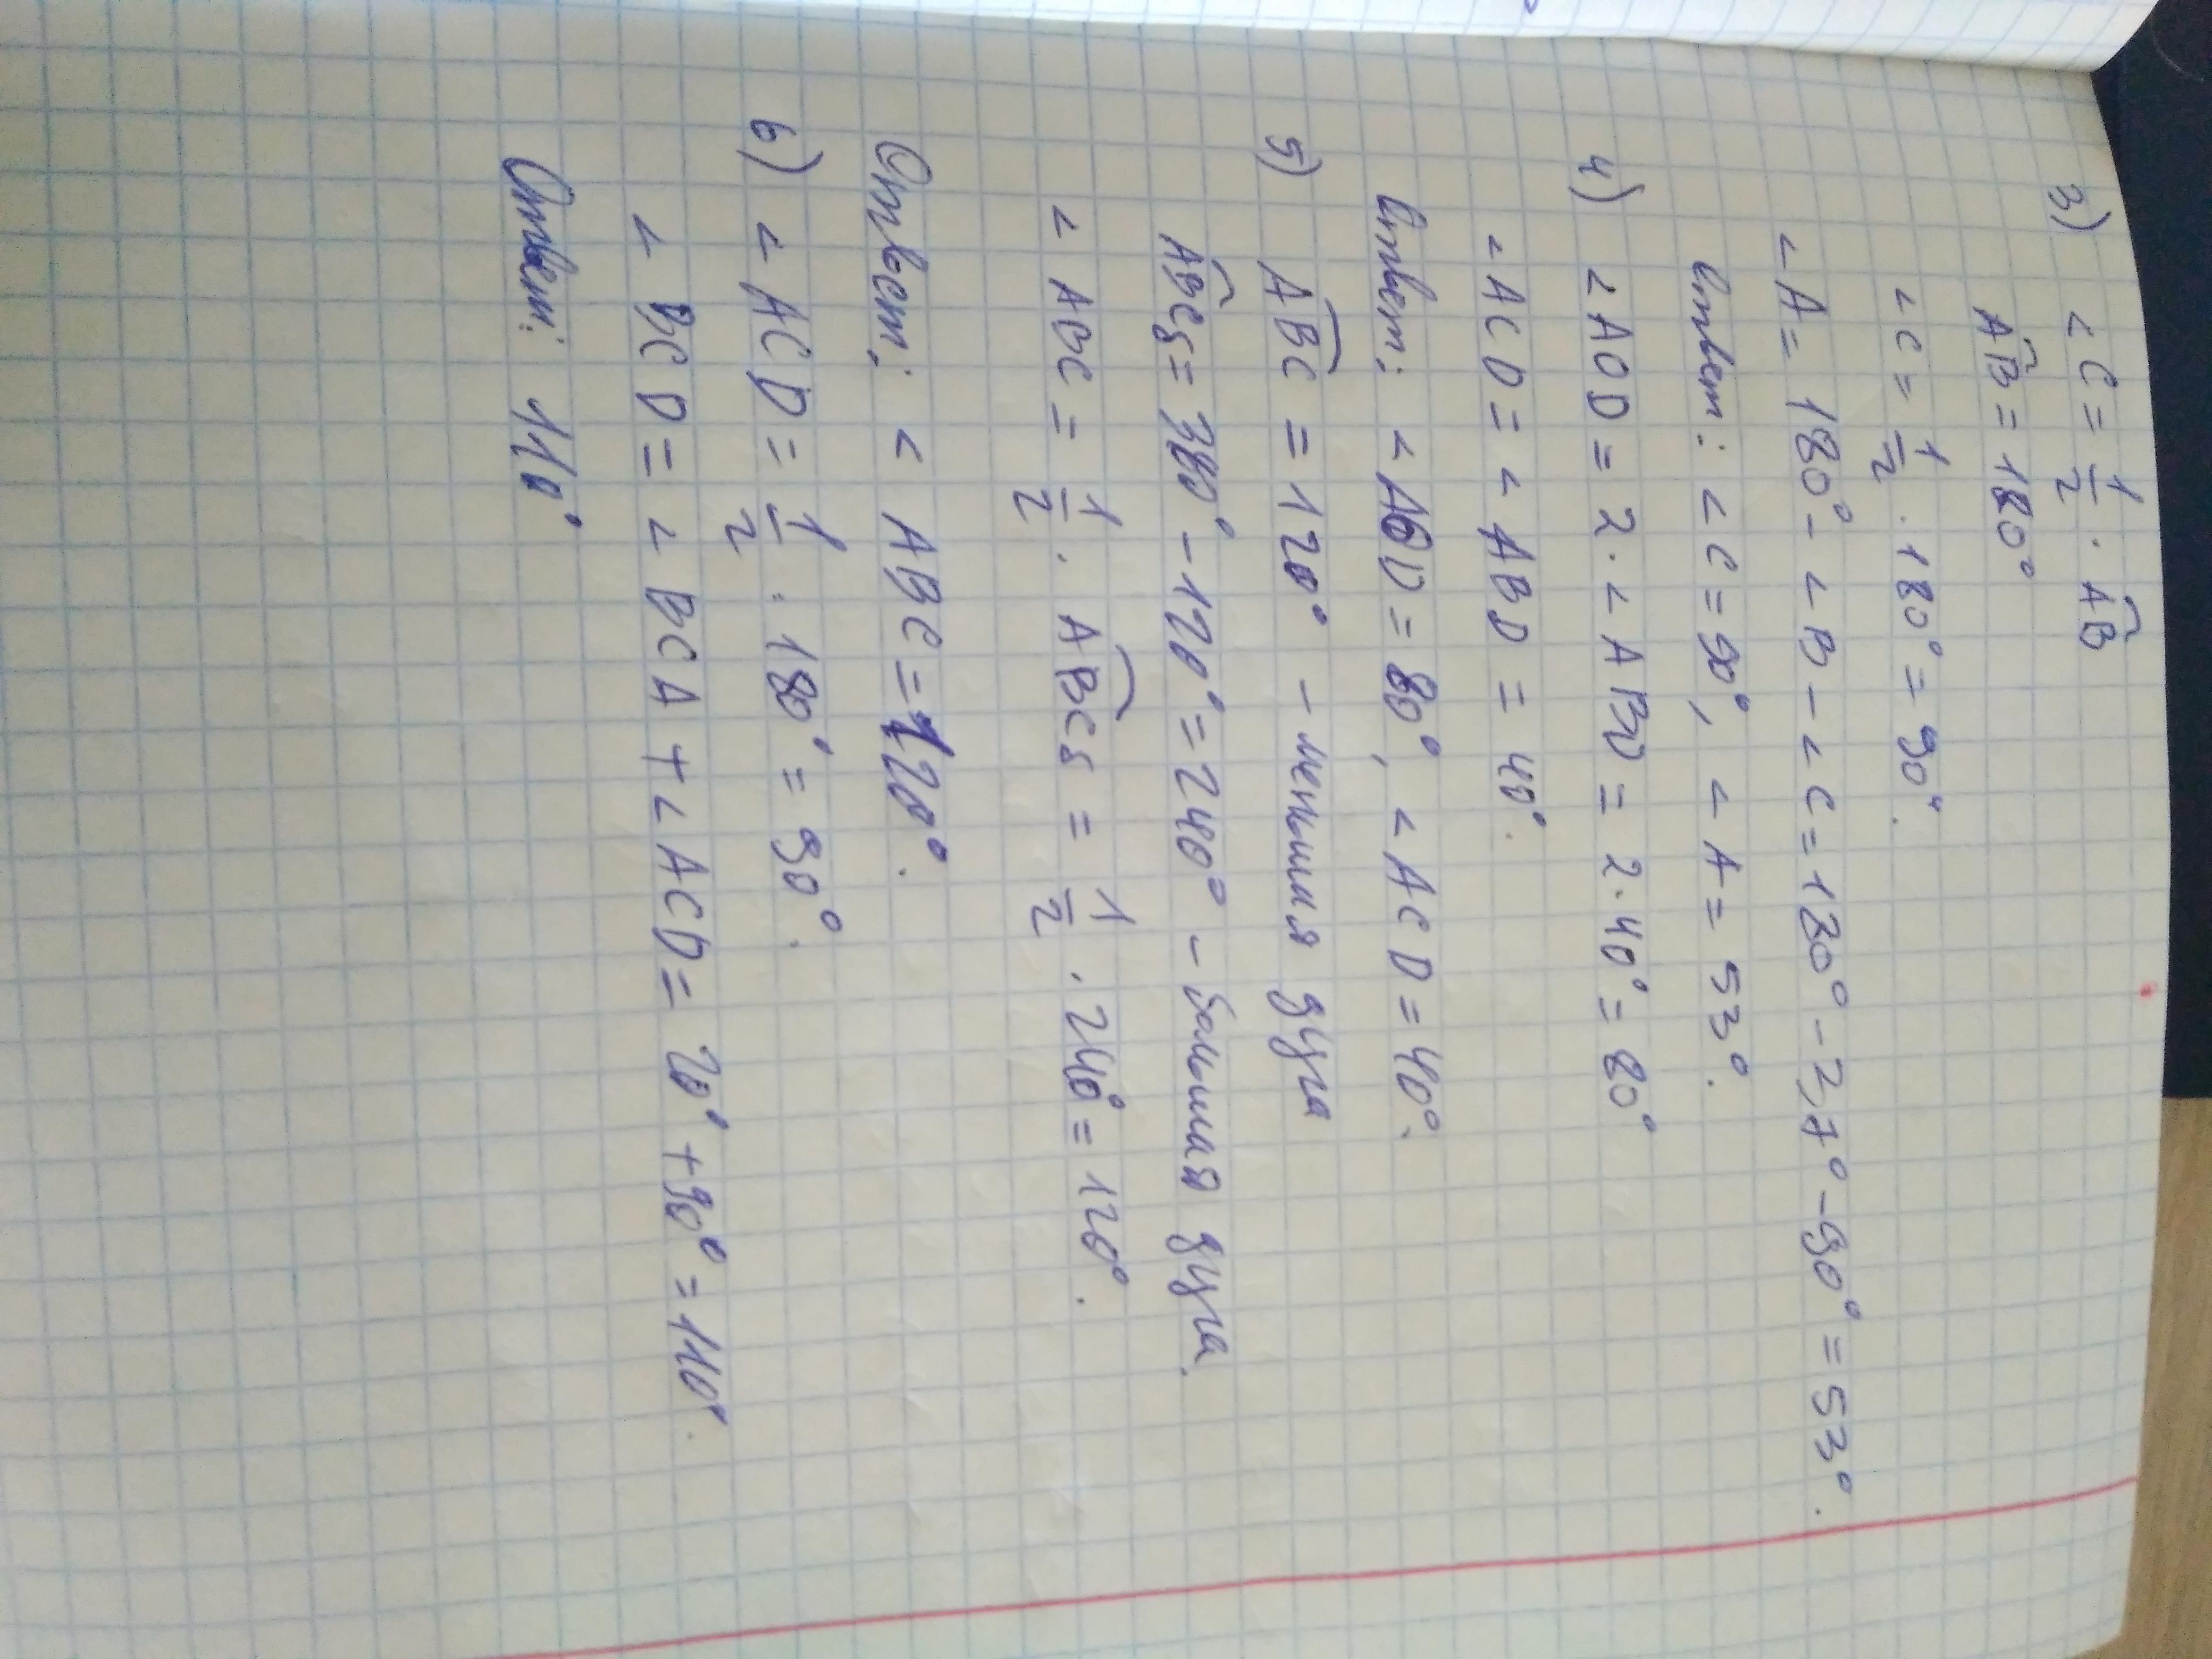 3) ∠C = 1/2 · A͡B
A͡B = 180°
∠C = 1/2 · 180° = 90°.
∠A = 180° - ∠B - ∠C = 180° - 37° - 90° = 53°.
Ответ: ∠C = 90°, ∠A = 53°.
4) ∠AOD = 2 · ∠ABD = 2 · 40° = 80°
∠ACD = ∠ABD = 40°.
Ответ: ∠AOD = 80°, ∠ACD = 40°.
5) A͡BC = 120° - меньшая дуга
A͡BCб = 360° - 120° = 240° - большая дуга.
∠ABC = 1/2 · A͡BCб = 1/2 · 240° = 120°.
Ответ: ∠ABC = 120°.
6) ∠ACD = 1/2 · 180° = 90°.
∠BCD = ∠BCA + ∠ACD = 20° + 90° = 110°.
Ответ: 110°